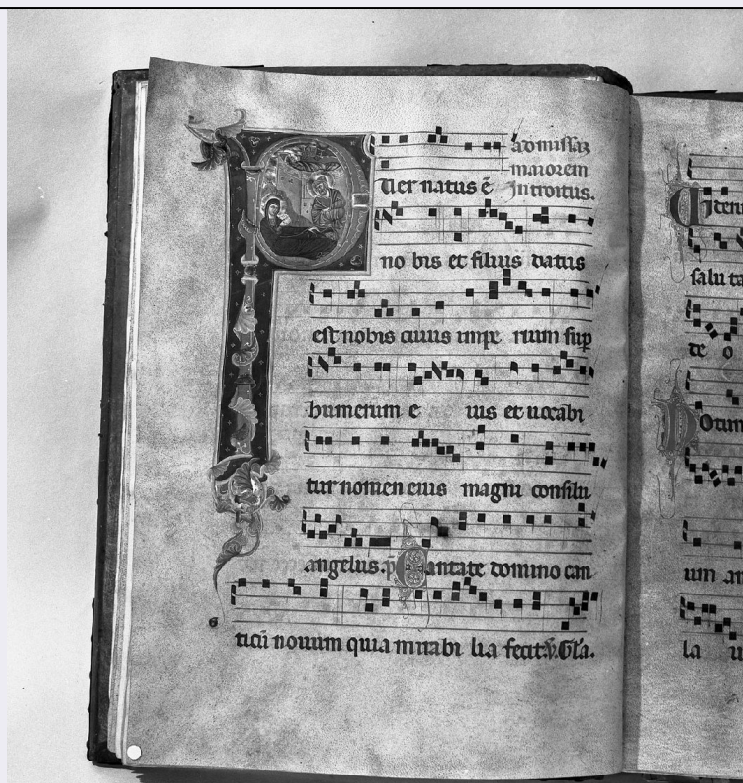 ad missaz
maiorem
Introitus.
Puer natus ē
no bis et filius datus
est nobis cuius impe rium sup
humerum e ius et uocabi
tur nomen eius magni consilii
angelus. ps Cantate domino can
ticū nouum quia mirabi lia fecit. V. Gla.
salu ta
te o
Potum
um an
la u